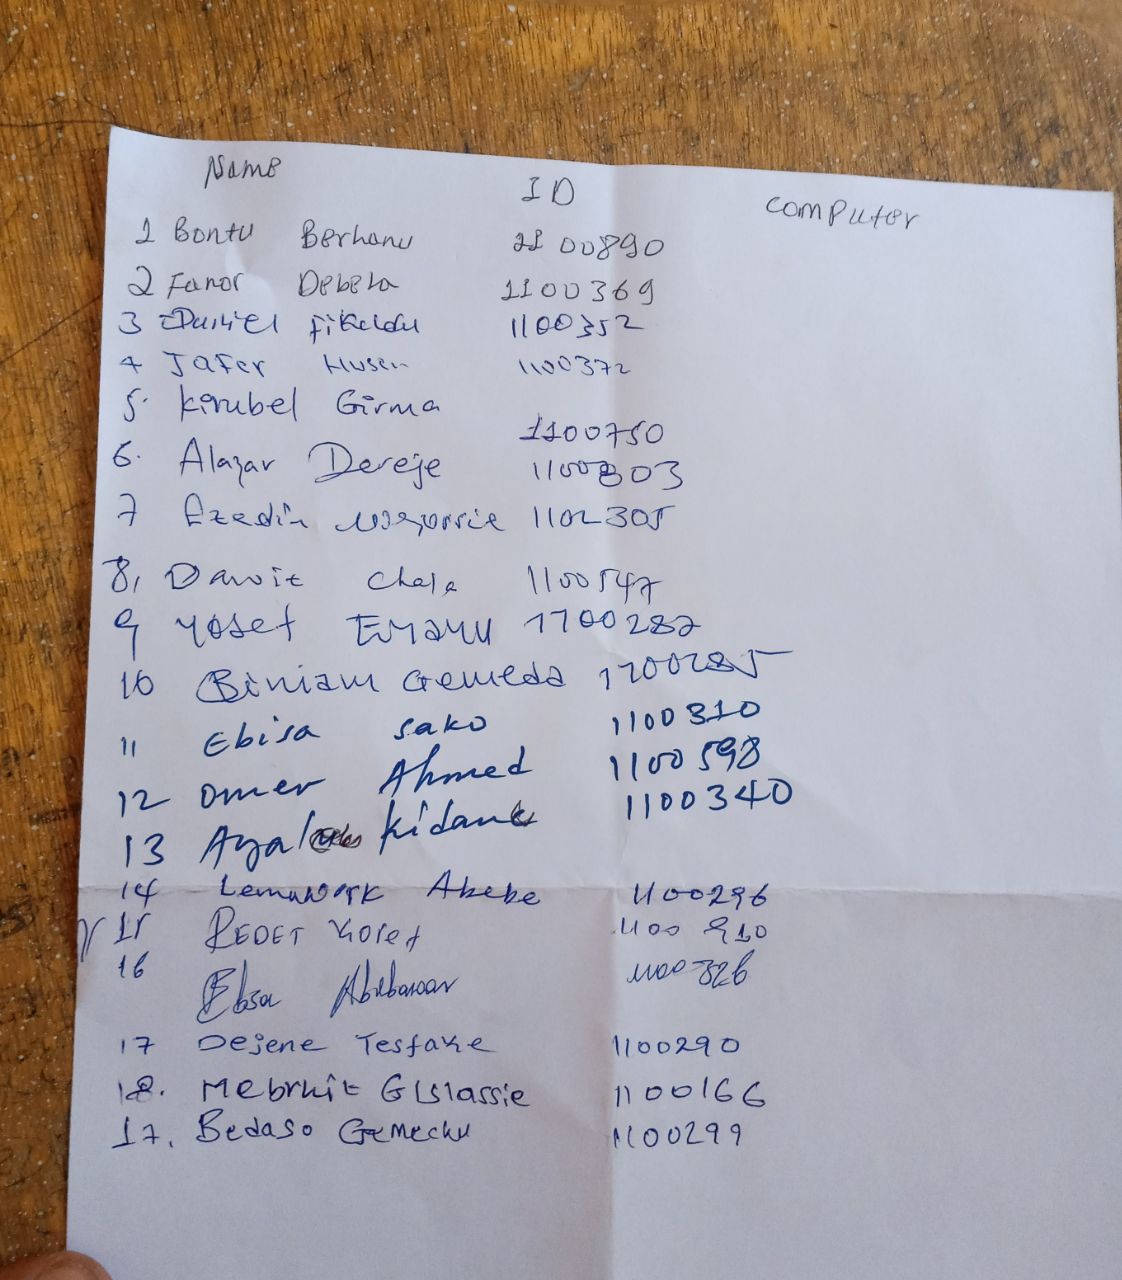 Name ID Computer
1 Bontu Berhanu 1100890
2 Fanor Debela 1100369
3 Daniel Fikadu 1100352
4 Jafer Husen 1100372
5. Kirubel Girma 1100750
6. Alazar Dereje 1100803
7 Ezedin 1102305
8, Dawit Chala 1100547
9 Yosef 1100287
10 Biniam Gemeda 1100285
11 Ebisa Sako 1100310
12 Omer Ahmed 1100598
13 Kidane 1100340
14 Lemawork Abebe 1100296
15 REDET Yosef 1100 910
16 Ebsa 1100326
17 Dejene Tesfaye 1100290
18. Mebrhit G/slassie 1100166
17. Bedaso Gemechu 1100299